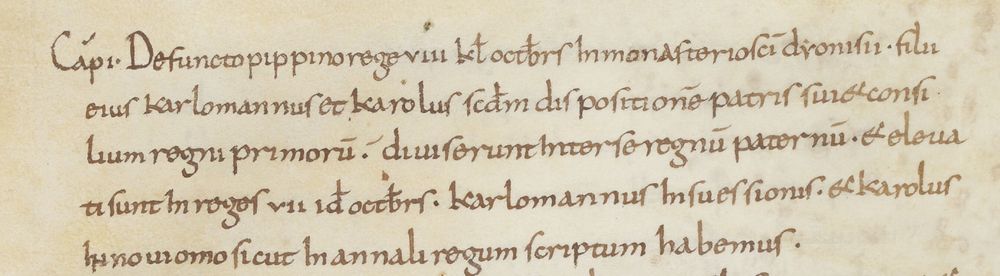 Cap̄ i· Defuncto pippino rege viii kƚ octƀrs In monasterio sc̄i dyonisii· filii
eius karlomannus et karolus scdm̄ dispositionē patris sui & consi
lium regni primorū· diuiserunt Inter se regnū paternū· & eleua
ti sunt In reges vii id̄ octƀrs· karlomannus In suessionis· & karolus
In nouiomo sicut In annali regum scriptum habemus·